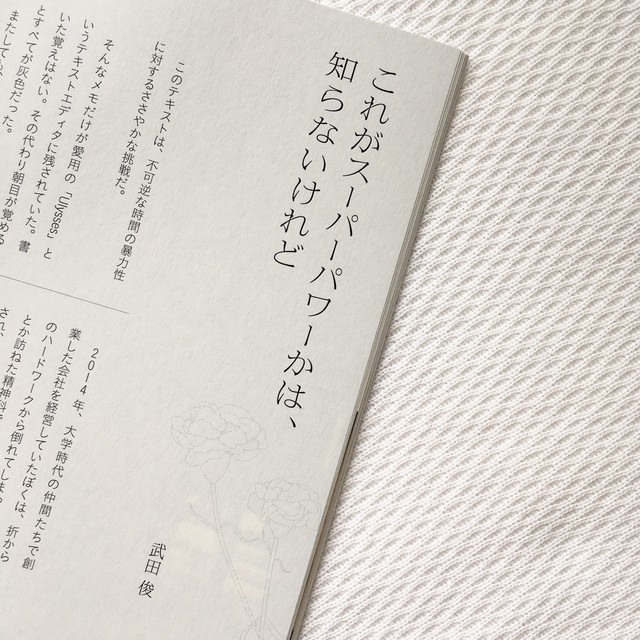 これがスーパーパワーかは、
知らないけれど
武田 俊
このテキストは、不可逆な時間の暴力性
に対するささやかな挑戦だ。
そんなメモだけが愛用の「Ulysses」と
いうテキストエディタに残されていた。書
いた覚えはない。その代わり朝目が覚める
とすべてが灰色だった。
またしても、
2014年、大学時代の仲間たちで創
業した会社を経営していたぼくは、折から
のハードワークから倒れてしまっ
とか訪ねた精神科で
され、